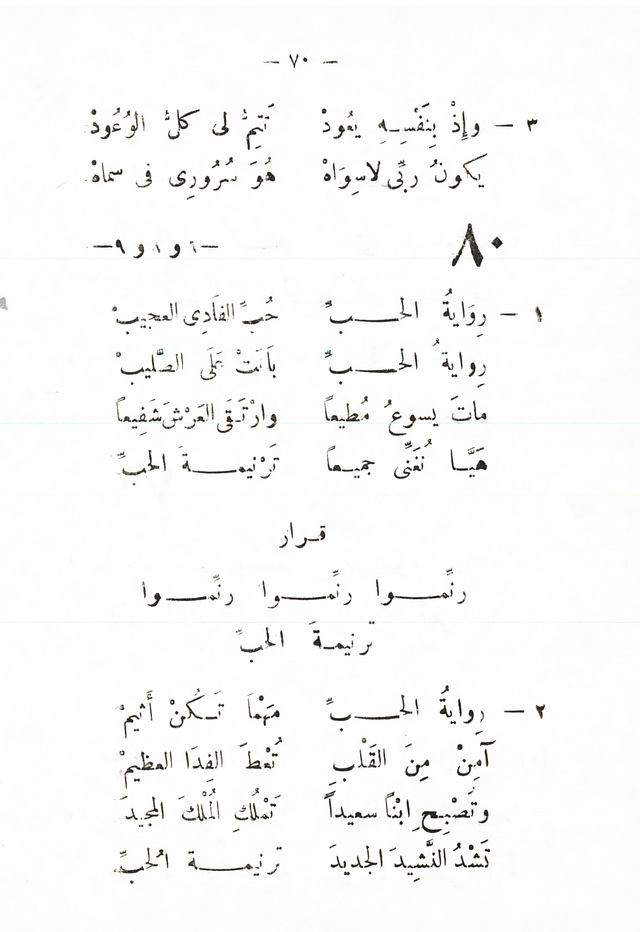 — ٧٠ —
٣ — وإِذْ بِنَفْسِهِ يَعُودْ تَتِمُّ لى كلُّ الوُعُودْ
يكونُ ربِّى لاسِوَاهْ هُوَ سُرُورِى فى سماهْ
٨٠ —٦ و ٨ و ٩—
١ — رِوَايةُ الحـــبِّ حُبِّ الفَادِى العجيبْ
رِوايةُ الحـــبِّ بَانَتْ عَلَى الصَّليبْ
ماتَ يسوعُ مُطيعاً وارْتَقَى العَرْشَ شَفِيعاً
هَيَّـا نُغَنِّى جميـعاً تَرْنيمـــةَ الحبِّ
قـرار
رنِّمـــوا رنِّمـــوا رنِّمـــوا
ترنيمـةَ الحبِّ
٢ — رِوايةُ الحـــبِّ مَهْمَا تَـكُنْ أَثيمْ
آمِنْ مِنَ القَلْبِ تُعْطَ الفِدَا العظيمْ
وتُصْبِح ابْناً سعيداً تَمْلُكِ المُلْكَ المجيدَ
تَشْدُ النَّشِيدَ الجديدَ ترنيمـــة الحبِّ